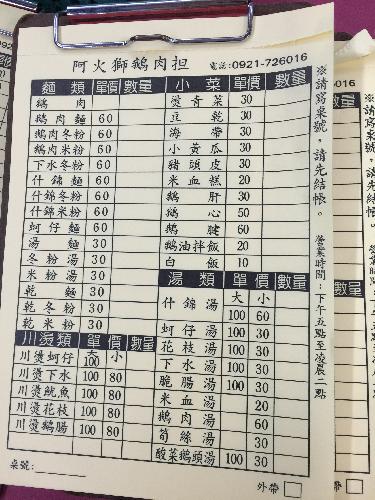 阿火獅鵝肉担 電話:0921-726016
麵類 單價 數量
鵝肉
鵝肉麵 60
鵝肉冬粉 60
鵝肉米粉 60
下水冬粉 60
什錦麵 60
什錦冬粉 60
什錦米粉 60
蚵仔麵 60
湯麵 30
冬粉湯 30
米粉湯 30
乾麵 30
乾冬粉 30
乾米粉 30
川燙類 單價 數量
大 小
川燙蚵仔 100
川燙下水 100 80
川燙魷魚 100 80
川燙花枝 100 80
川燙鵝腸 100 80
小菜 單價 數量
燙青菜 30
豆乾 30
海帶 30
小黃瓜 30
豬頭皮 30
米血糕 20
鵝肝 30
鵝心 50
鵝腱 60
鵝油拌飯 20
白飯 10
湯類 單價 數量
大 小
什錦湯 100 60
蚵仔湯 100 30
花枝湯 100 30
下水湯 100 30
脆腸湯 100 30
米血湯 20
鵝肉湯 60
筍絲湯 30
酸菜鵝頭湯 100 30
桌號:
外帶
※請寫桌號,請先結帳。
營業時間:下午五點至凌晨二點
6016
數量